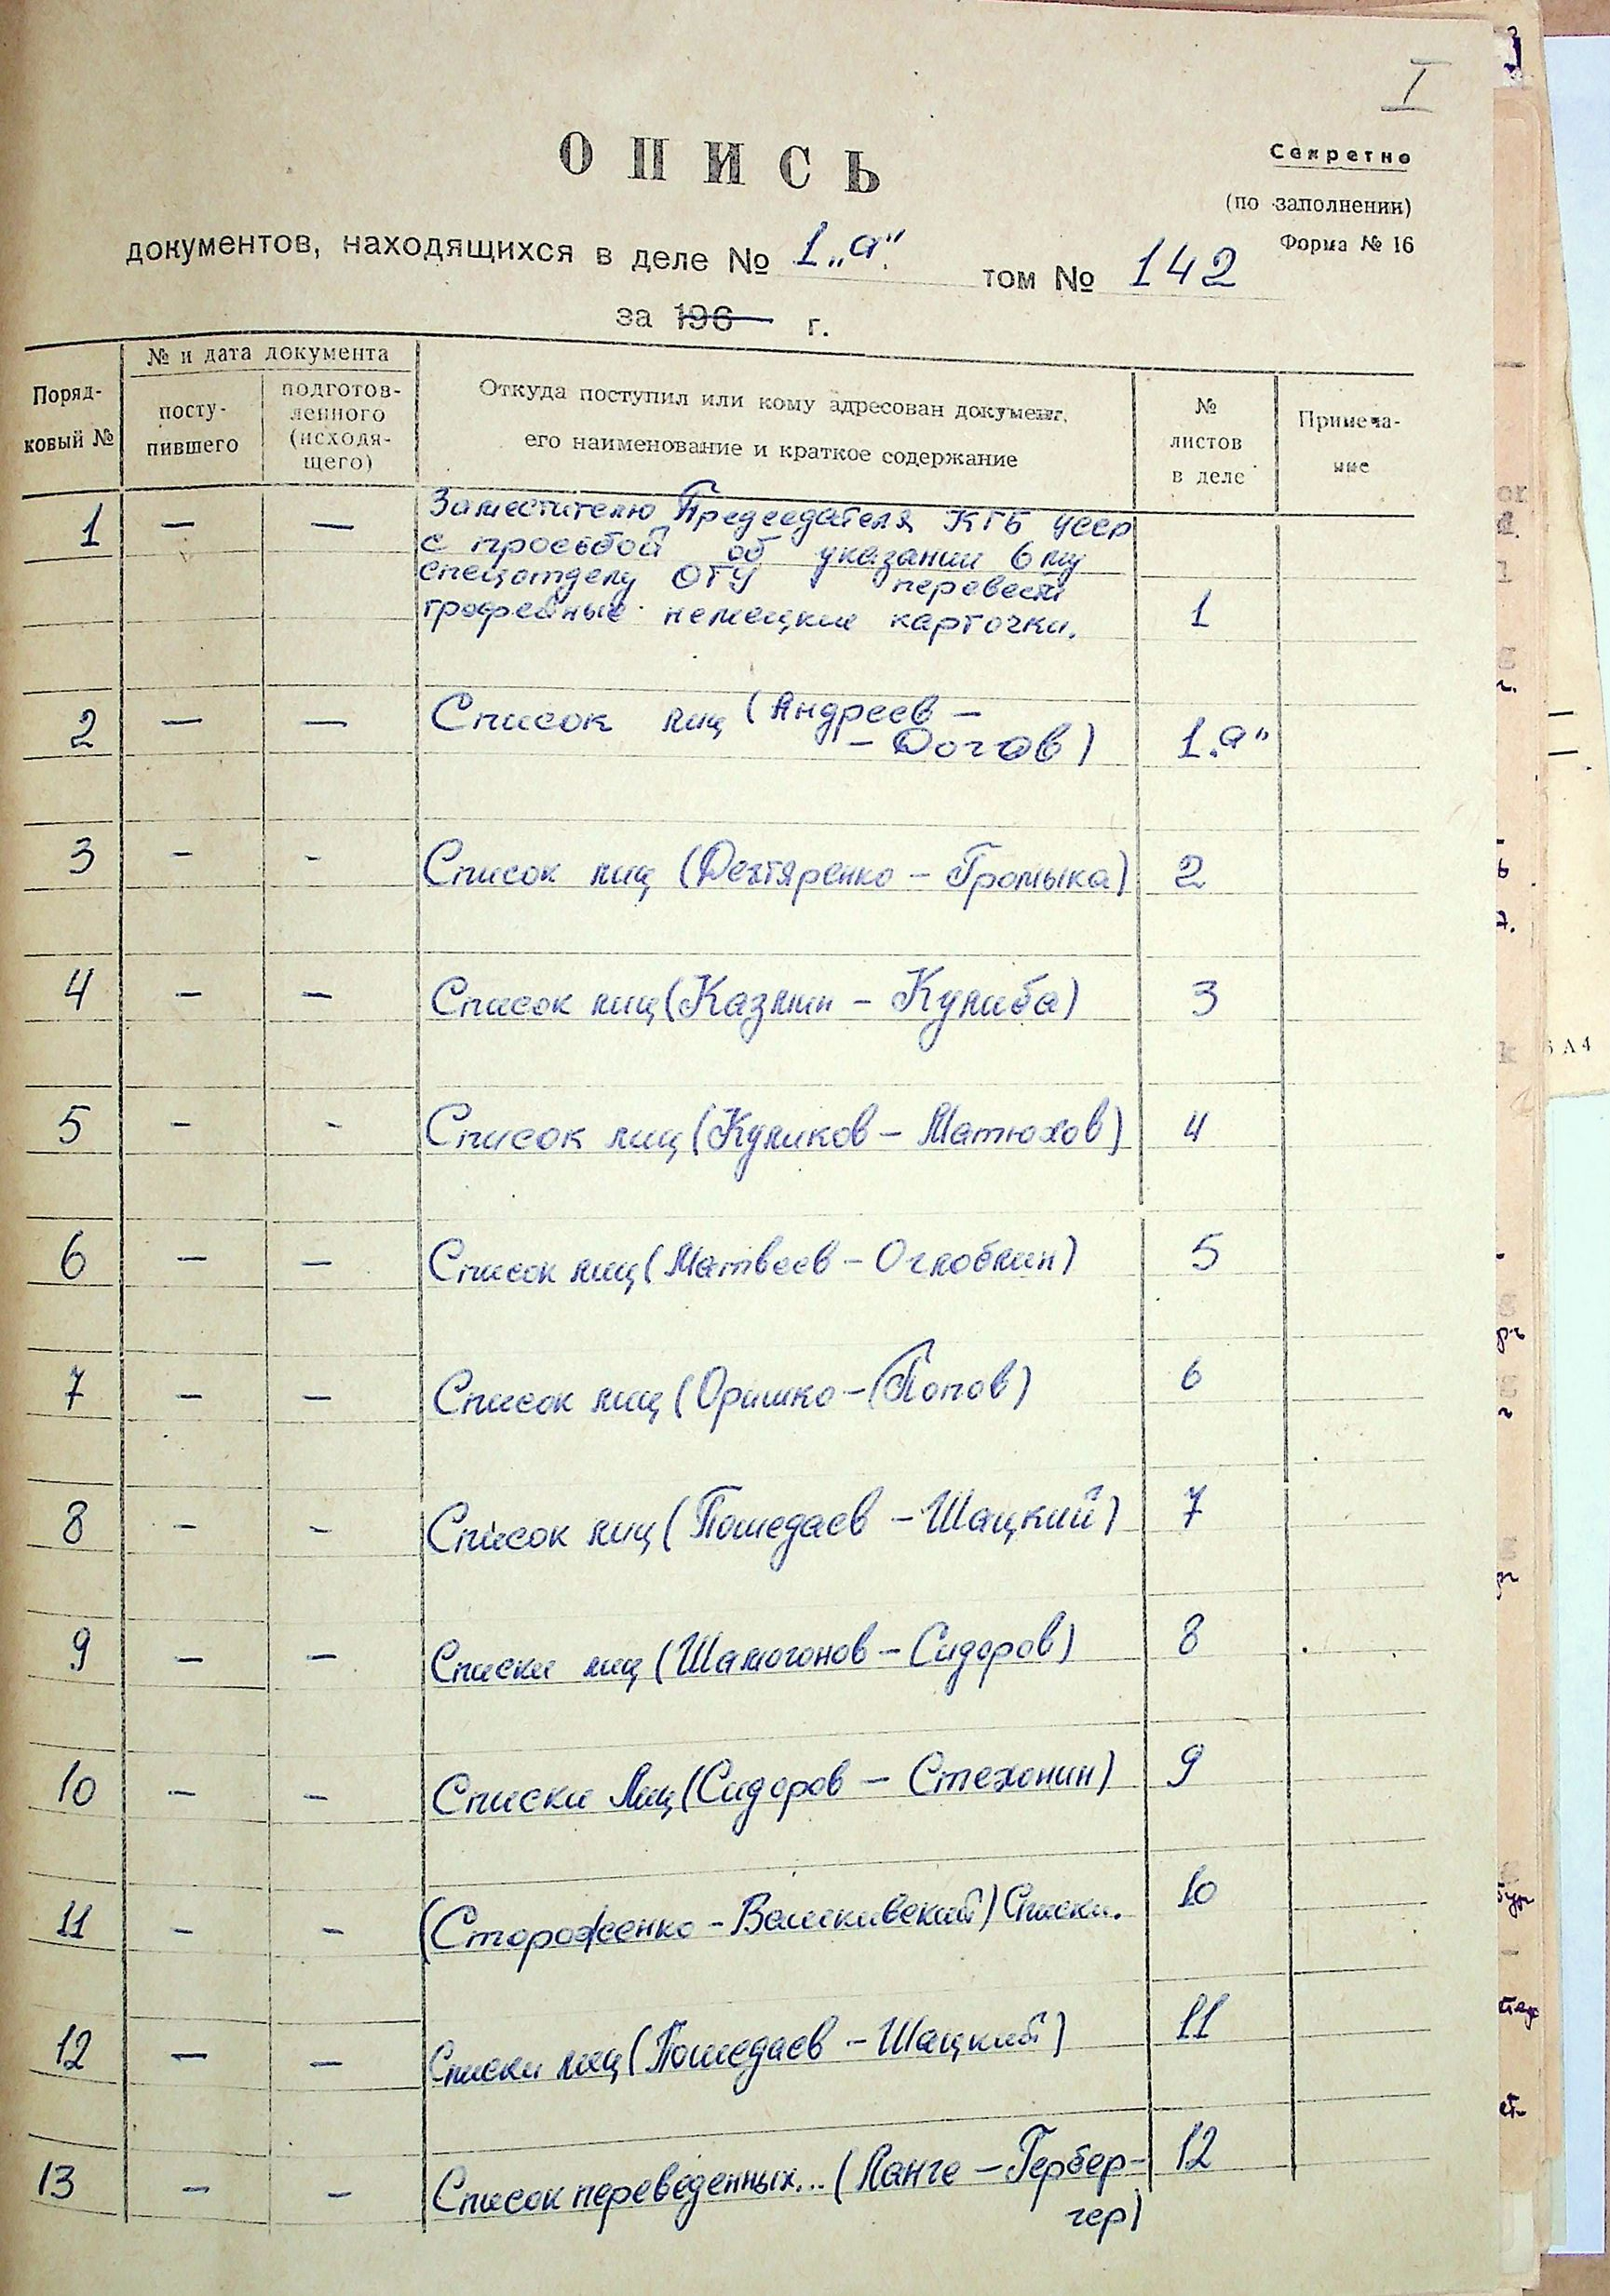 I
ОПИСЬ
Секретно
(по заполнении)
Форма № 16
документов, находящихся в деле № 1„а“ том № 142
за 196 г.
Поряд-
ковый №
№ и дата документа
посту-
пившего
подготов-
ленного
(исходя-
щего)
Откуда поступил или кому адресован документ,
его наименование и краткое содержание
№
листов
в деле
Примеча-
ние
1 — — Заместителю Председателя КГБ УССР
с просьбой об указании 6 му
спецотделу ОГУ перевести
трофейные немецкие карточки. 1
2 — — Список лиц (Андреев —
— Догов) 1„а“
3 - - Список лиц (Дехтяренко – Громыка) 2
4 – – Список лиц (Казлин – Кулиба) 3
5 - - Список лиц (Куликов – Матюхов) 4
6 – – Список лиц (Матвеев – Оглоблин) 5
7 – – Список лиц (Оришко – Попов) 6
8 - - Список лиц (Пошедаев – Шацкий) 7
9 – – Списки лиц (Шамогонов – Сидоров) 8
10 - - Списки Лиц (Сидоров – Стехонин) 9
11 - - (Стороженко – Вашкивский) Списки. 10
12 – – Списки лиц (Пошедаев – Шацкий) 11
13 - - Список переведенных... (Ланге – Гербер-
гер) 12